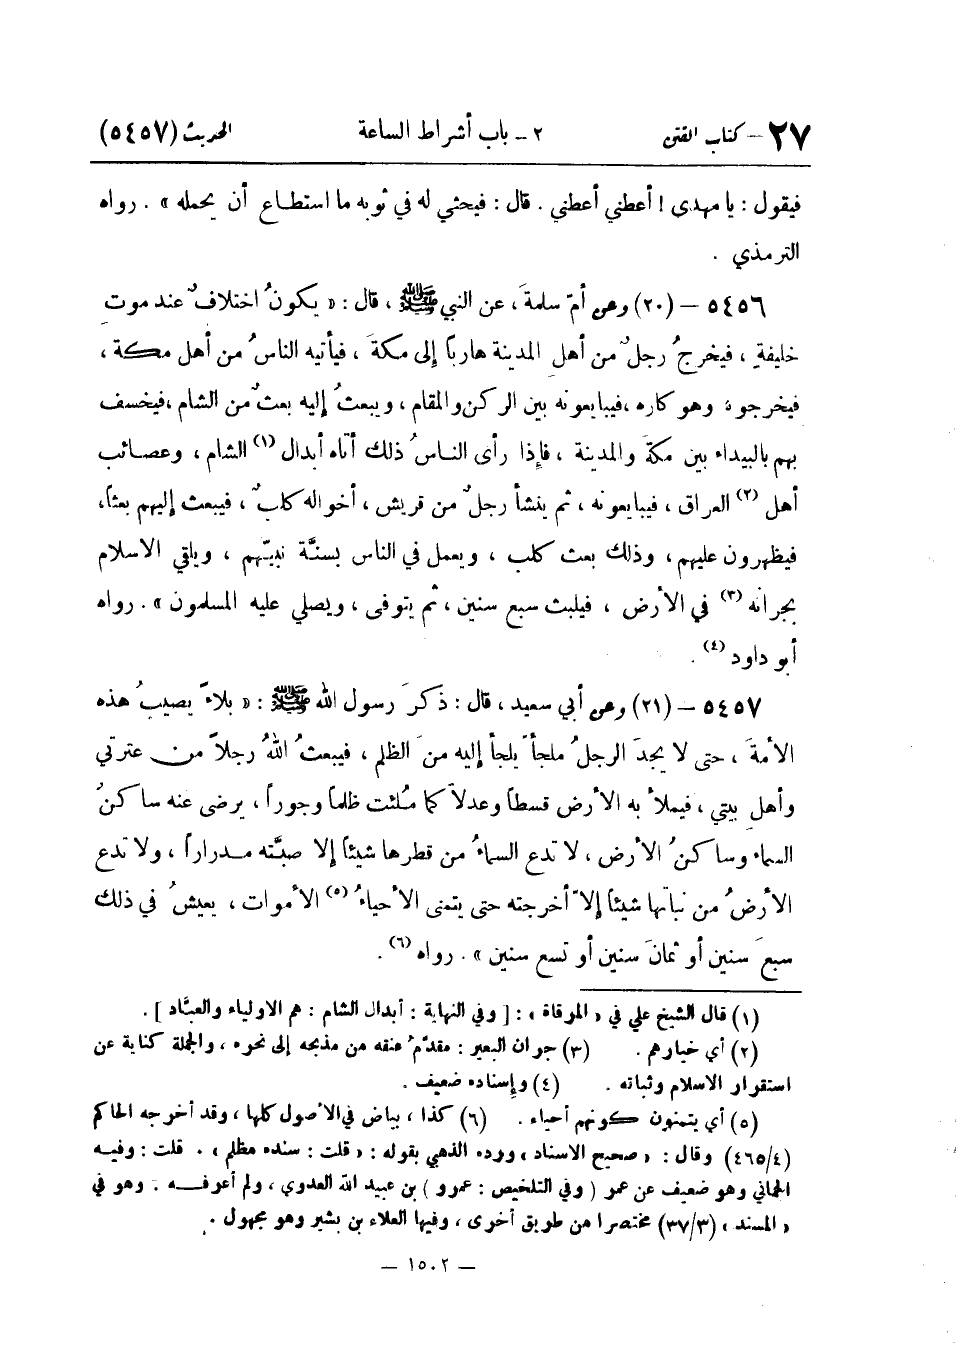 ٢٧ – كتاب الفتن ٢ – باب أشراط الساعة الحديث (٥٤٥٧)
فيقول : يا مهدي ! أعطني أعطني . قال : فيحثي له في ثوبه ما استطاع أن يحمله » . رواه
الترمذي .
٥٤٥٦ – (٢٠) وعن أمّ سلمةَ ، عن النبي ﷺ ، قال : « يكونُ اختلافٌ عند موتِ
خليفةٍ ، فيخرجُ رجلٌ من أهلِ المدينة هارباً إلى مكةَ ، فيأتيه الناسُ من أهل مكة ،
فيخرجوه وهو كاره ، فيبايعونه بين الركن والمقام ، ويبعثُ إليه بعثٌ من الشام ، فيخسف
بهم بالبيداء بين مكةَ والمدينة ، فإذا رأى الناسُ ذلك أتاه أبدال (١) الشام ، وعصائب
أهل (٢) العراق ، فيبايعونه ، ثم ينشأ رجلٌ من قريش ، أخواله كلبٌ ، فيبعث إليهم بعثاً،
فيظهرون عليهم ، وذلك بعث كلب ، ويعمل في الناس بسنَّة نبيّهم ، ويلقي الاسلام
بجرانه (٣) في الأرض ، فيلبث سبع سنين ، ثم يتوفى ، ويصلي عليه المسلمون » . رواه
أبو داود (٤) .
٥٤٥٧ – (٢١) وعن أبي سعيد ، قال : ذكرَ رسول الله ﷺ : « بلاءً يصيبُ هذه
الأمةَ ، حتى لا يجدَ الرجلُ ملجأً يلجأ إليه من الظلم ، فيبعثُ اللهُ رجلاً من عترتي
وأهلِ بيتي ، فيملأ به الأرض قسطاً وعدلاً كما مُلئت ظلماً وجوراً ، يرضى عنه ساكنُ
السماء وساكنُ الأرض ، لا تدع السماءُ من قطرها شيئاً إلا صبَّته مدراراً ، ولا تدع
الأرضُ من نباتها شيئاً إلاّ أخرجته حتى يتمنى الأحياءُ (٥) الأموات ، يعيشُ في ذلك
سبعَ سنين أو ثمانَ سنين أو تسع سنين » . رواه (٦) .
(١) قال الشيخ علي في « المرقاة » : [ وفي النهاية : أبدال الشام : هم الاولياء والعبَّاد ] .
(٢) أي خيارهم . (٣) جران البعير : مقدّمُ عنقه من مذبحه إلى نحره ، والجملة كناية عن
استقرار الاسلام وثباته . (٤) وإسناده ضعيف .
(٥) أي يتمنون كونهم أحياء . (٦) كذا ، بياض في الأصول كلها ، وقد أخرجه الحاكم
(٤٦٥/٤) وقال : « صحيح الاسناد » ورده الذهبي بقوله : « قلت : سنده مظلم » . قلت : وفيه
الحماني وهو ضعيف عن عمر ( وفي التلخيص : عمرو ) بن عبيد الله العدوي ، ولم أعرفه . وهو في
« المسند » (٣٧/٣) مختصرا من طريق أخرى ، وفيها العلاء بن بشير وهو مجهول .
– ١٥٠٢ –